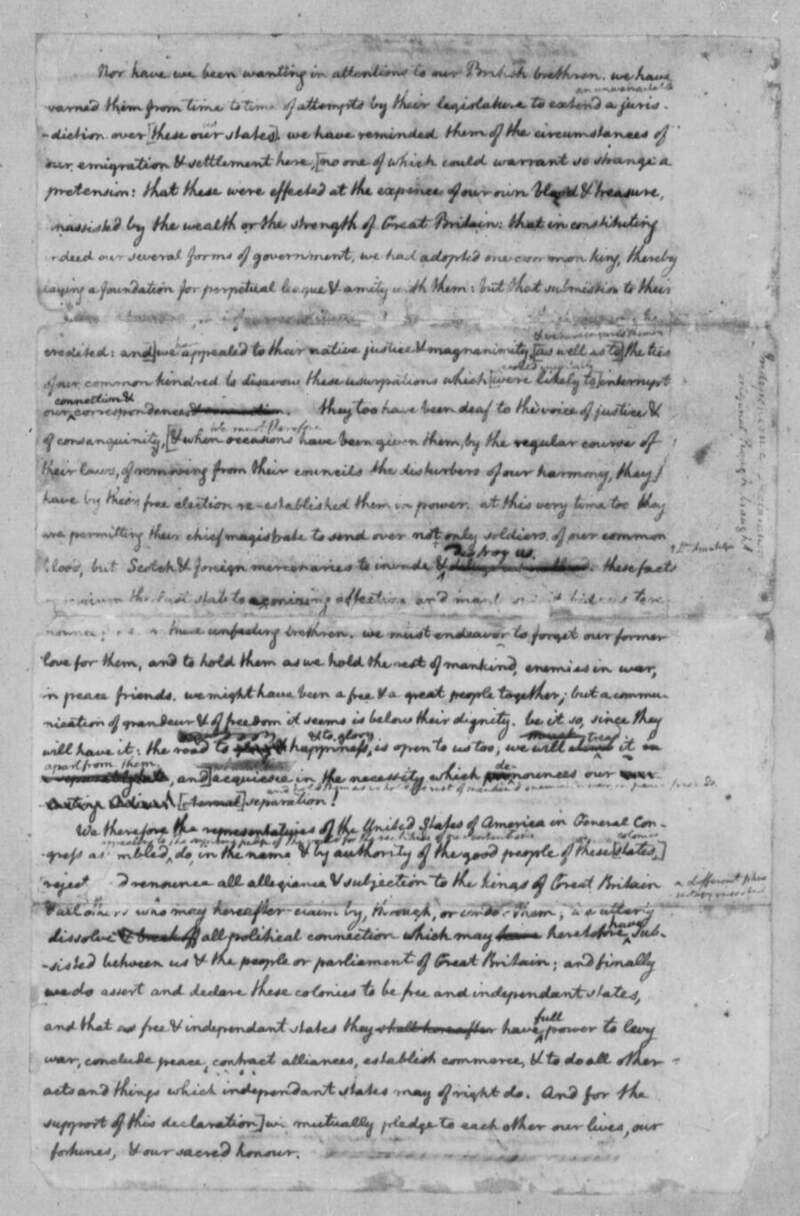 Nor have we been wanting in attentions to our British brethren. we have
an unwarrantable
warned them from time to time of attempts by their legislature to extend a juris-
-diction over [these our states]. we have reminded them of the circumstances of
our emigration & settlement here, [no one of which could warrant so strange a
pretension: that these were effected at the expence of our own blood & treasure,
nassisted by the wealth or the strength of Great Britain: that in constituting
ndeed our several forms of government, we had adopted one common king, thereby
laying a foundation for perpetual league & amity with them: but that submission to their
credited: and] we appealed to their native justice & magnanimity, [as well as to] the ties
of our common kindred to disavow these usurpations which [were likely to] interrupt
connection &
our correspondence. they too have been deaf to the voice of justice &
we must therefore
of consanguinity, [& when occasions have been given them, by the regular course of
their laws, of removing from their councils the disturbers of our harmony, they
have by their free election re-established them in power. at this very time too they
are permitting their chief magistrate to send over not only soldiers of our common
blood, but Scotch & foreign mercenaries to invade &
destroy us.
these facts
given the last stab to agonizing affection, and
unfeeling brethren. we must endeavor to forget our former
love for them, and to hold them as we hold the rest of mankind, enemies in war,
in peace friends. we might have been a free & a great people together; but a commu-
nication of grandeur & of freedom it seems is below their dignity. be it so, since they
& to glory
will have it: the road to happiness, is open to us too; we will it
apart from them
and] acquiesce in the necessity which denounces our
[eternal] separation!
We therefore the representatives of the United States of America in General Con-
colonies
gress assembled, do, in the name & by authority of the good people of these [states,]
reject & renounce all allegiance & subjection to the kings of Great Britain
& all others who may hereafter claim by, through, or under them; we utterly
dissolve & break off all political connection which may heretofore have sub-
-sisted between us & the people or parliament of Great Britain; and finally
we do assert and declare these colonies to be free and independant states,
and that as free & independant states they shall hereafter have full power to levy
war, conclude peace, contract alliances, establish commerce, & to do all other
acts and things which independant states may of right do. And for the
support of this declaration] we mutually pledge to each other our lives, our
fortunes, & our sacred honour.
a different